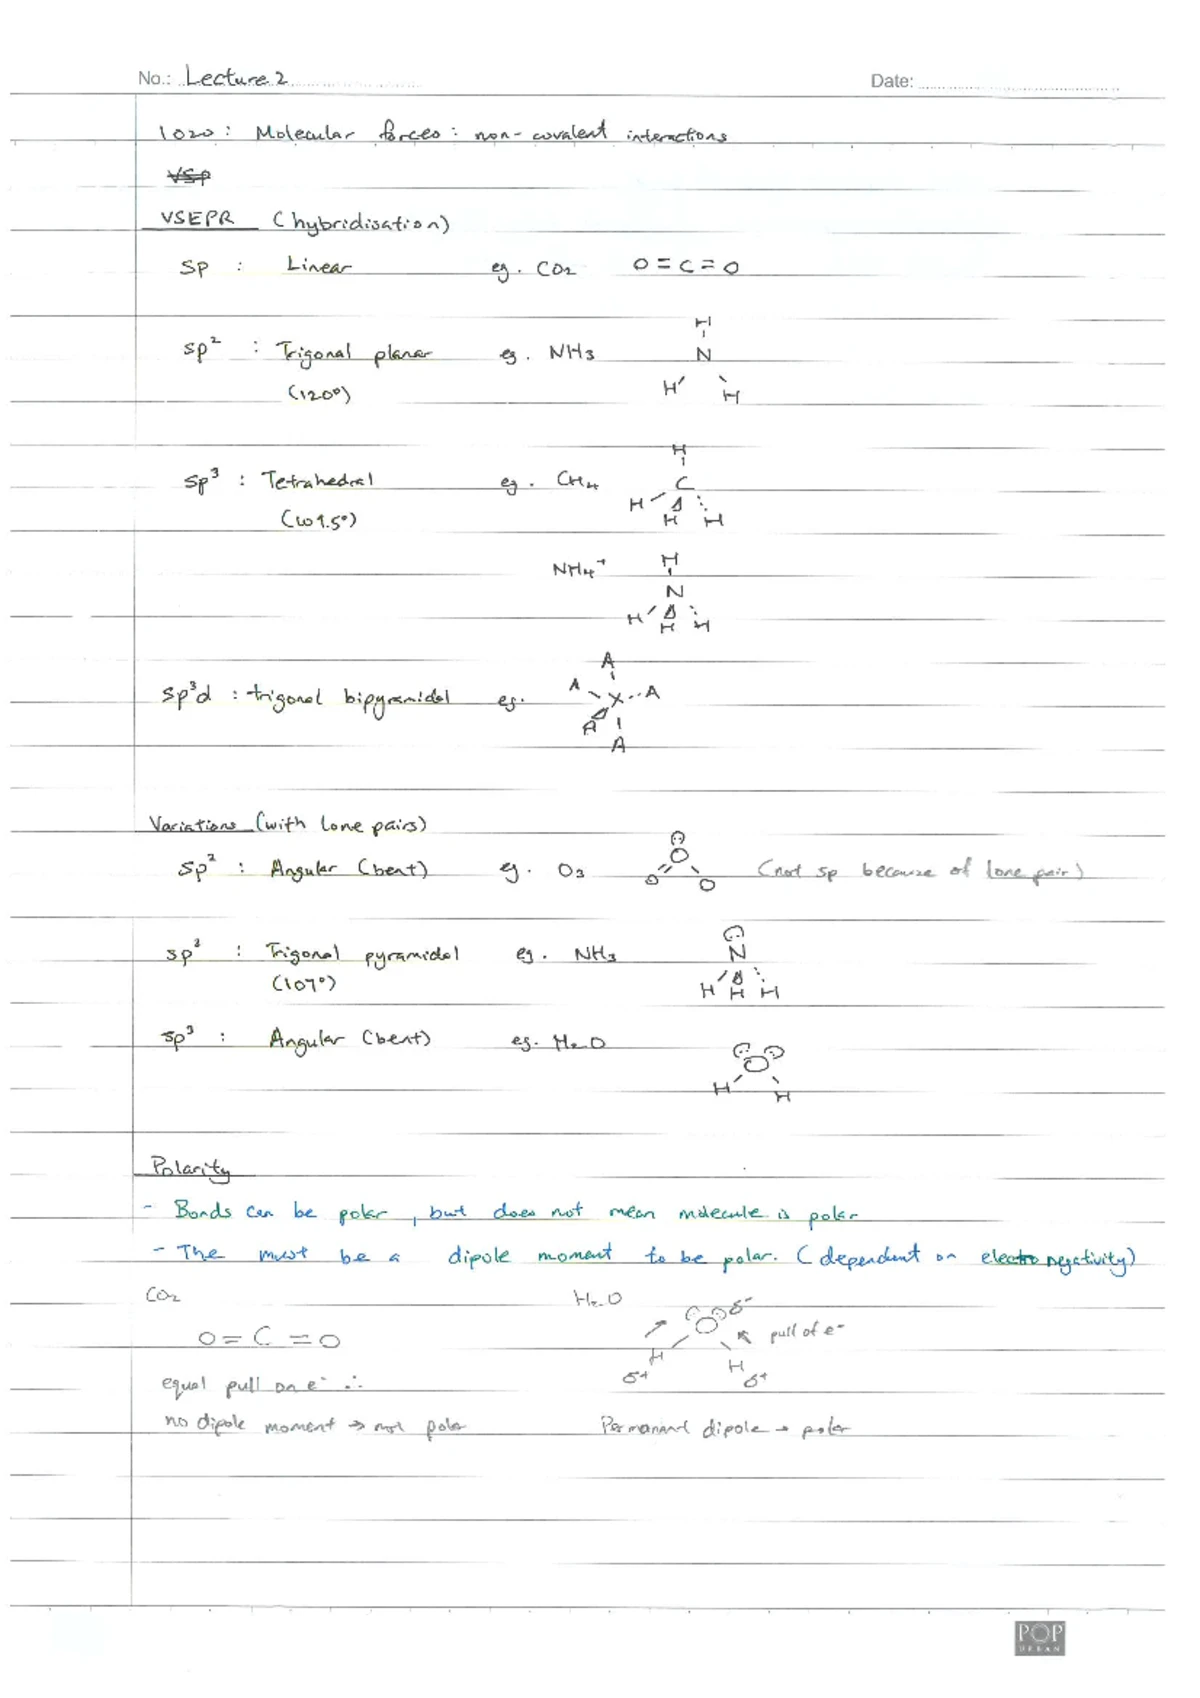 No.: Lecture 2 Date:
1020 : Molecular forces : non-covalent interactions
VSP
VSEPR (hybridisation)
sp : Linear eg. CO2 O=C=O
H
sp² : Trigonal planar eg. NH3 N
(120°) H H
H
sp³ : Tetrahedral eg. CH4 C
H
(109.5°) H H
NH4+ H
N
H H H
A
sp³d : trigonal bipyramidal eg. A X A
A
A
Variations (with lone pairs)
sp² : Angular (bent) eg. O3 O (not sp because of lone pair)
O O
sp³ : Trigonal pyramidal eg. NH3 N
(107°) H H H
sp³ : Angular (bent) eg. H2O
O
H H
Polarity
- Bonds can be polar, but does not mean molecule is polar
- The must be a dipole moment to be polar. (dependent on electronegativity)
CO2 H2O δ-
O=C=O O pull of e-
H H
equal pull on e- ∴ δ+ δ+
no dipole moment → not polar Permanant dipole → polar
POP
URBAN